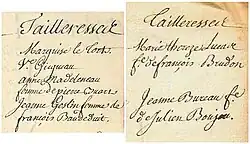 Tailleresses
Marquise le Tort
Ve Guignau
anne Madeleneau
femme de piere
Jeanne Goslin femme de
françois Baudeduit.
Tailleresses
Marie Therese
fe de françois Brudon
Jeanne Bureau fe
de Julien Boujou.